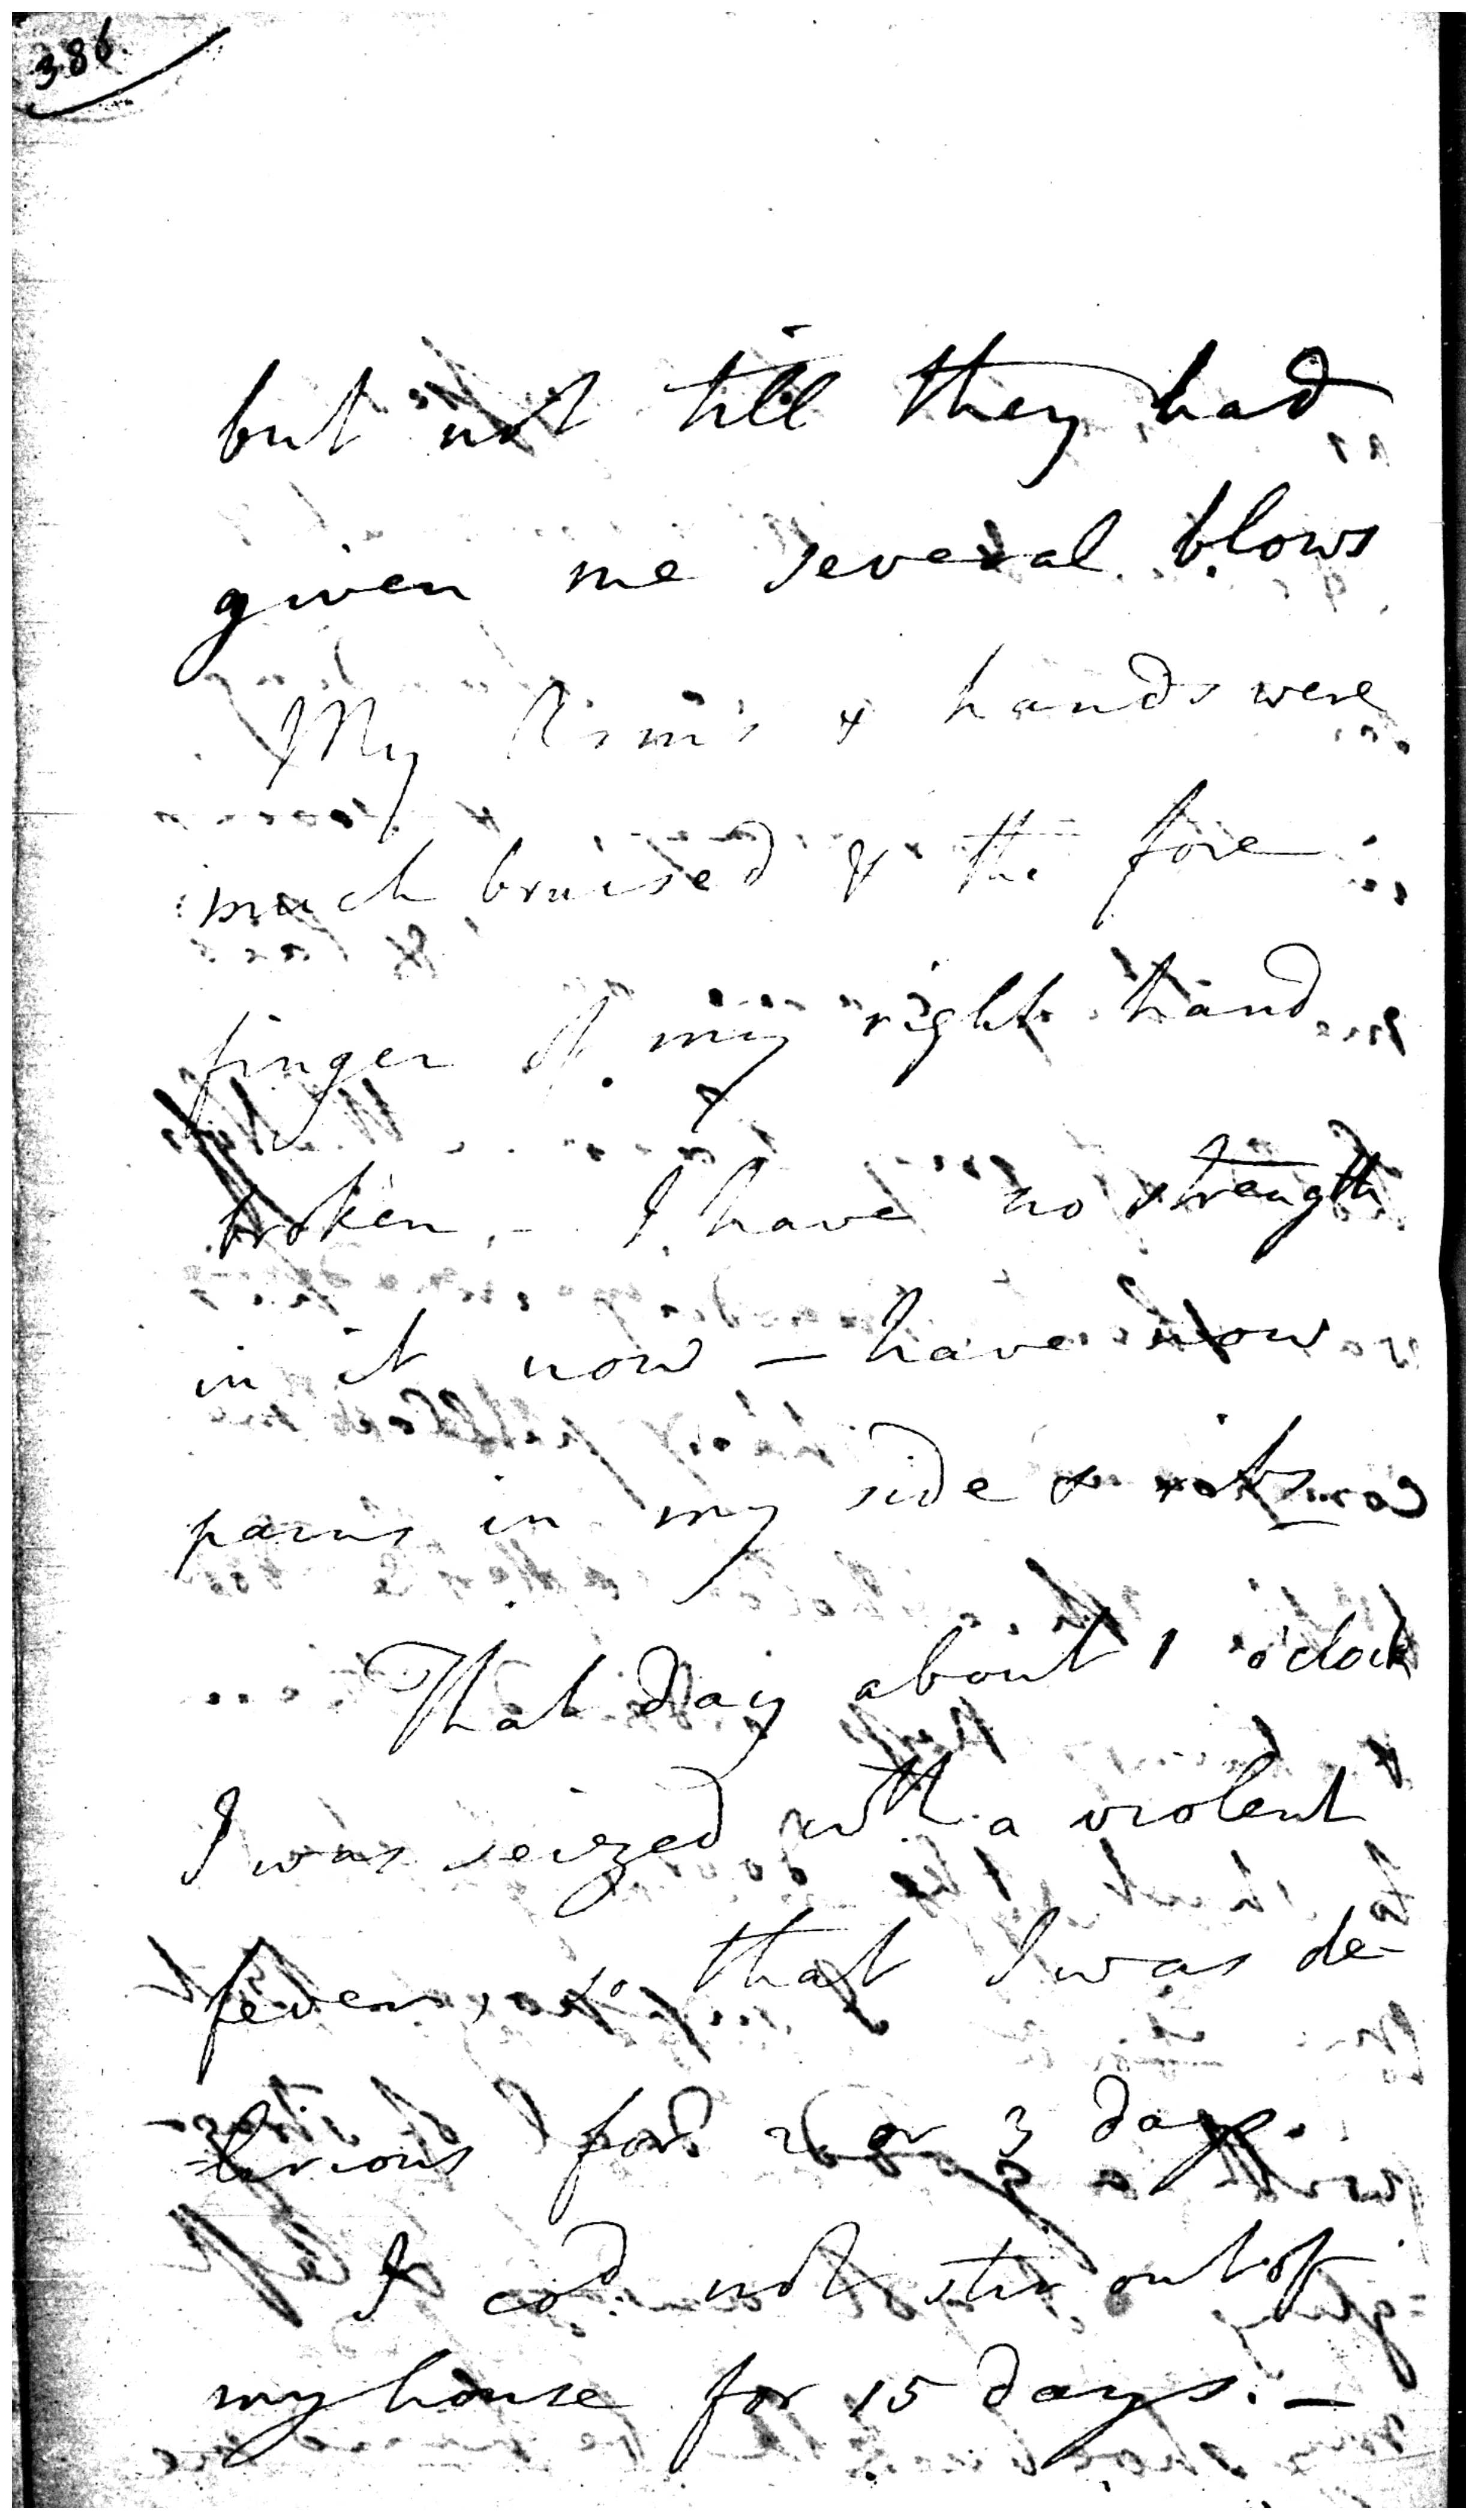 386.
but not till they had
given me several blows
My Arms & hands were
much bruised & the fore
finger of my right hand
broken, - I have no strength
in it now - have now
pains in my side & ribs
That day about 1 o'clock
I was seized with a violent
fever, so that I was de-
=lirious for 2 or 3 days.
I cod. not stir out of
my house for 15 days. -